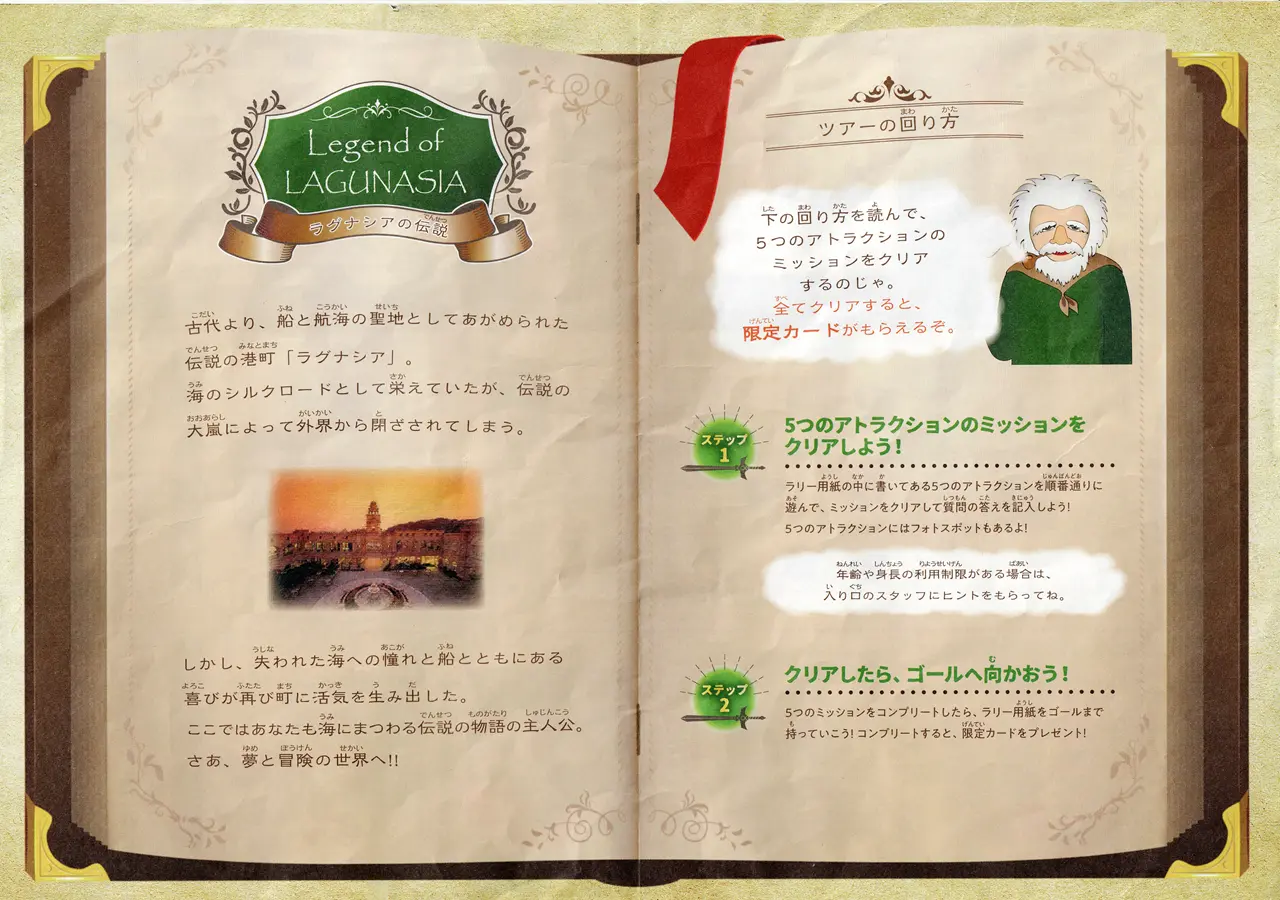 Legend of
LAGUNASIA
ラグナシアの伝説
古代より、船と航海の聖地としてあがめられた
伝説の港町「ラグナシア」。
海のシルクロードとして栄えていたが、伝説の
大嵐によって外界から閉ざされてしまう。
しかし、失われた海への憧れと船とともにある
喜びが再び町に活気を生み出した。
ここではあなたも海にまつわる伝説の物語の主人公。
さあ、夢と冒険の世界へ!!
ツアーの回り方
下の回り方を読んで、
5つのアトラクションの
ミッションをクリア
するのじゃ。
全てクリアすると、
限定カードがもらえるぞ。
ステップ
1
5つのアトラクションのミッションを
クリアしよう!
ラリー用紙の中に書いてある5つのアトラクションを順番通りに
遊んで、ミッションをクリアして質問の答えを記入しよう!
5つのアトラクションにはフォトスポットもあるよ!
年齢や身長の利用制限がある場合は、
入り口のスタッフにヒントをもらってね。
ステップ
2
クリアしたら、ゴールへ向かおう!
5つのミッションをコンプリートしたら、ラリー用紙をゴールまで
持っていこう!コンプリートすると、限定カードをプレゼント!